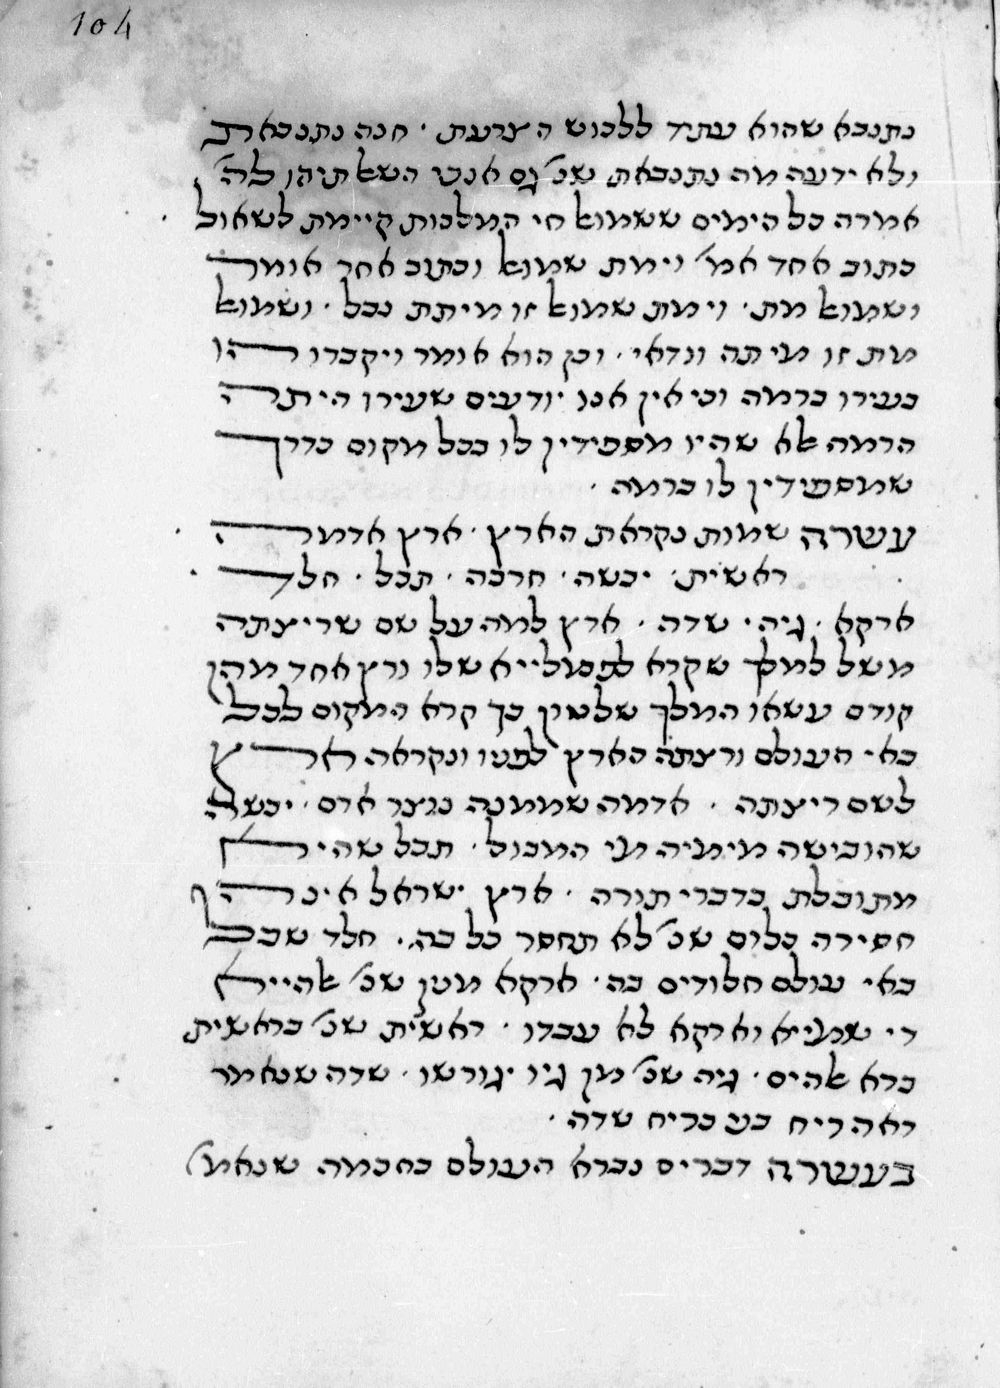 104
נתנבא שהוא עתיד ללבוש הצרעת · חנה נתנבאת
ולא ידעה מה נתנבאת שנ׳ גם אנכי השאלתיהו לה׳
אמרה כל הימים ששמואל חי המלכות קיימת לשאול ·
כתוב אחד אמ׳ וימת שמואל וכתוב אחר אומר
ושמואל מת · וימת שמואל זו מיתת נבל · ושמואל
מת זו מיתה ודאי · וכן הוא אומר ויקברוהו
בעירו ברמה וכי אין אנו יודעים שעירו היתה
הרמה אלא שהיו מספידין לו בכל מקום כדרך
שמספידין לו ברמה ·
עשרה שמות נקראת הארץ · ארץ אדמה ·
ראשית · יבשה · חרבה · תבל · חלד ·
ארקא · גיה · שדה · ארץ למה על שם שריצתה
משל למלך שקרא לפמלייא שלו ורץ אחד מהן
קודם עשאו המלך שלטון כך קרא המקום לכל
באי העולם ורצתה הארץ לפניו ונקראה ארץ
לשם ריצתה · אדמה שממנה נוצר אדם · יבשה
שהובישה מימיה מי המבול · תבל שהיא
מתובלת בדברי תורה · ארץ ישראל אינה
חסירה כלום שנ׳ לא תחסר כל בה · חלד שכל
באי עולם חלודים בה · ארקא מנין שנ׳ אלהייא
די שמייא וארקא לא עבדו · ראשית שנ׳ בראשית
ברא אלהים · גיה שנ׳ מן גיו יגורשו · שדה שנאמר
ראה ריח בני כריח שדה ·
בעשרה דברים נברא העולם בחכמה שנאמ׳